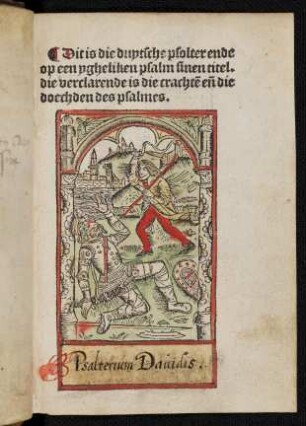 ¶ Dit is die duytsche psolter ende
op een ygheliken psalm sinen titel.
die verclarende is die crachtē eñ die
doechden des psalmes.
Psalterium Dauidis.